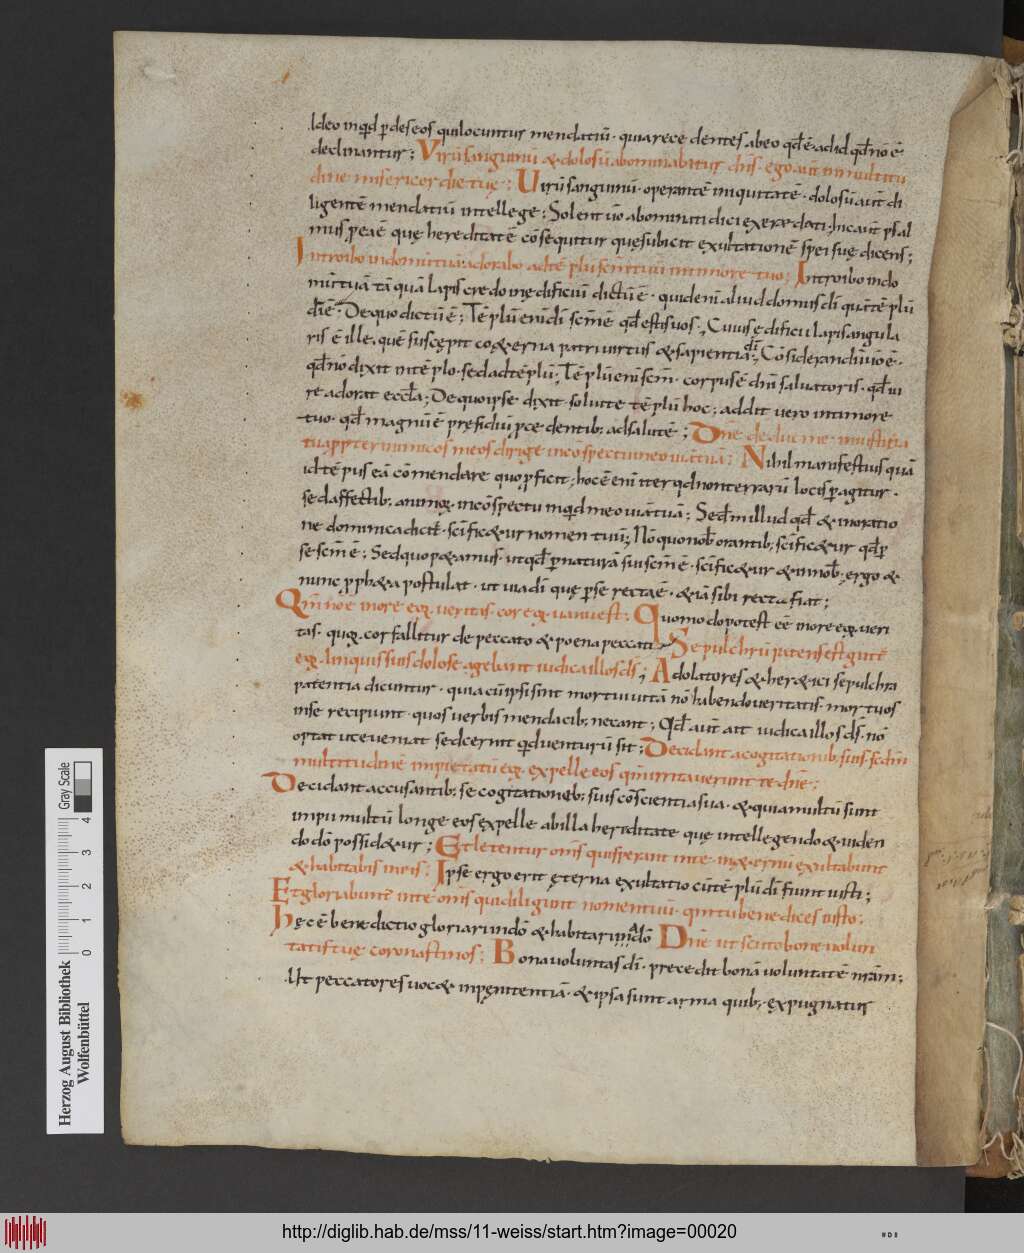 Ideo inqd pdes eos qui locuntur mendatiū · quia rece dentes abeo qđ ē · adid qđ nō ē ·
declinantur ; Virū sanguinū & dolosū abominabitur dn̄s · ego aut̄ in multitu
dine misericordie tuę ; Virū sanguinū · operantē iniquitatē · dolosū aut̄ di
ligentē mendatiū intellege ; Solent
mus p eā ē quę hereditatē cōsequitur quę subicit exultationē spei suę dicens ;
Introibo in domū tuā adorabo ad tēplū sc̄m tuū in timore tuo ; Introibo in do
mū tuā tā quā lapis credo in ędificiū dictū ē · quid enī aliud domus dī quā tēplū
dī ē · De quo dictū ē ; Tēplū enī dī sc̄m ē qđ estis uos ; Cuius ędificii lapis angula
ris ē ille, quē suscępit coę&erna patri uirtus & sapientia dī ; Cōsiderandū ē ·
qđ nō dixit in tēplo · sed ad tēplū ; Tēplū enī sc̄m · corpus ē dn̄i saluatoris · qđ ui
re adorat eccl̄a ; De quo ipse dixit · soluite tēplū hoc ; addit uero in timore
tuo · qđ magnū ē pręsidiū pce dentib; ad salutē ; Dn̄e deduc me in iustitia
tua ppter inimicos meos dirige in cōspectu meo uiā tuā ; Nihil manifestius quā
id tēpus eā cōmendare quo pficit ; hoc ē enī iter qđ non terrarū locis pagitur ·
sed affectib; animę · in cōspectu inquid meo uiā tuā ; Sed & in illud qđ & in oratio
ne dominica dicit̄ · sc̄ific&ur nomen tuū ; Nō quo nob̄ orantib; sc̄ific&ur qđ p
se sc̄m ē ; Sed quo p&amus · ut qđ p naturā sui sc̄m ē · sc̄ific&ur & in nob̄ ; ergo &
nunc pph&a postulat · ut uia dī quę pse recta ē · & iā sibi recta fiat ;
Qm̄ nō ē in ore eoꝝ ueritas · cor eoꝝ uanū est ; Quomodo potest eē in ore eoꝝ ueri
tas · quoꝝ cor fallitur de peccato & poena peccati ; Sepulchrū patens est guttē
eoꝝ linguis suis dolose agebant iudica illos dś ; Adolatores & her&ici sepulchra
patentia dicuntur · quia cū ipsi sint mortui uitā nō habendo ueritatis · mortuos
in se recipiunt · quos uerbis mendacib; necant ; Qđ aut̄ ait iudica illos dś · nō
optat ut eueniat sed cernit qđ uenturū sit ; Decidant a cogitationib; suis · scđm
multitudinē impietatū eoꝝ expelle eos qm̄ irritauerunt te dn̄e ;
Decidant accusantib; se cogitationib; suis cōscientia sua · & quia multū sunt
impii multū longe eos expelle ab illa hereditate quę intellegendo & uiden
do dō possid&ur ; Et letentur om̄s qui sperant in te · in ęternū exultabunt
& habitabis in eis ; Ipse ergo erit ęterna exultatio cū tēplū dī fiunt iusti ;
Et gloriabunt̄ in te om̄s qui diligunt nomen tuū · qm̄ tu benedices iusto ;
Hęc ē benedictio gloriari in dō & habitari a dō Dn̄e ut scuto bone uolun
tatis tuę coronasti nos ; Bona uoluntas dī · precedit bonā uoluntatē nr̄am ;
Ut peccatores uoc& in pęnitentiā · & ipsa sunt arma quib; expugnatur
Herzog August Bibliothek
Wolfenbüttel
0 1 2 3 4
Gray Scale
http://diglib.hab.de/mss/11-weiss/start.htm?image=00020